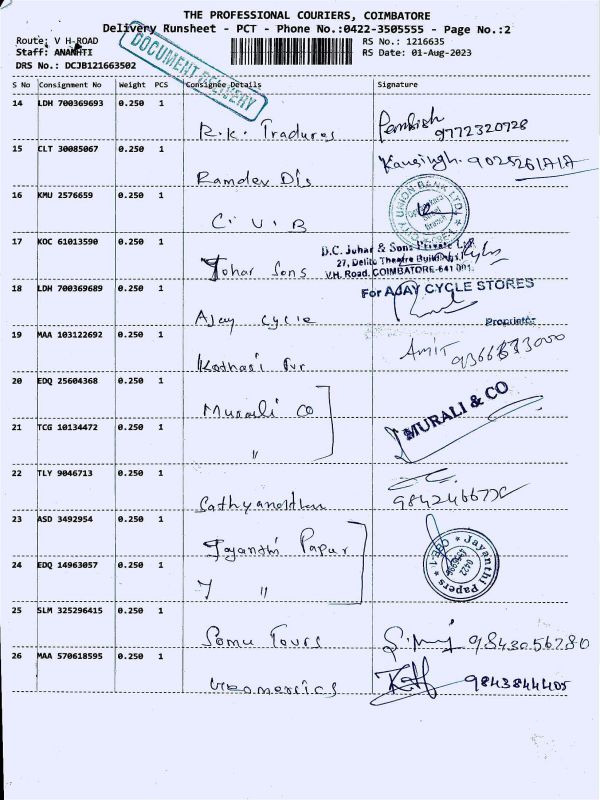 THE PROFESSIONAL COURIERS, COIMBATORE
Delivery Runsheet - PCT - Phone No.:0422-3505555 - Page No.:2
Route: V H-ROAD
RS No.: 1216635
Staff: ANANHTI
RS Date: 01-Aug-2023
DRS No.: DCJB121663502
DOCUMENT DELIVERY
S No Consignment No Weight PCS Consignee Details Signature
14 LDH 700369693 0.250 1
R.K. Tradures 9772320728
15 CLT 30085067 0.250 1
Ramdev Dis Kausingh.
16 KMU 2576659 0.250 1
C.U.B
CITY UNION BANK LTD.
17 KOC 61013590 0.250 1
Johar Sons
D.C. Johar & Sons Private Ltd.
27, Delite Theatre Buildings,
V.H. Road, COIMBATORE-641 001.
18 LDH 700369689 0.250 1
Ajay cycle
For AJAY CYCLE STORES
Proprietor
19 MAA 103122692 0.250 1
Kothari Amit
20 EDQ 25604368 0.250 1
Murali Co
MURALI & CO
21 TCG 10134472 0.250 1
"
22 TLY 9046713 0.250 1
23 ASD 3492954 0.250 1
Jayanthi Papur
Jayanthi Papers
24 EDQ 14963057 0.250 1
"
25 SLM 325296415 0.250 1
Somu Tours 9843056280
26 MAA 570618595 0.250 1
9843844405